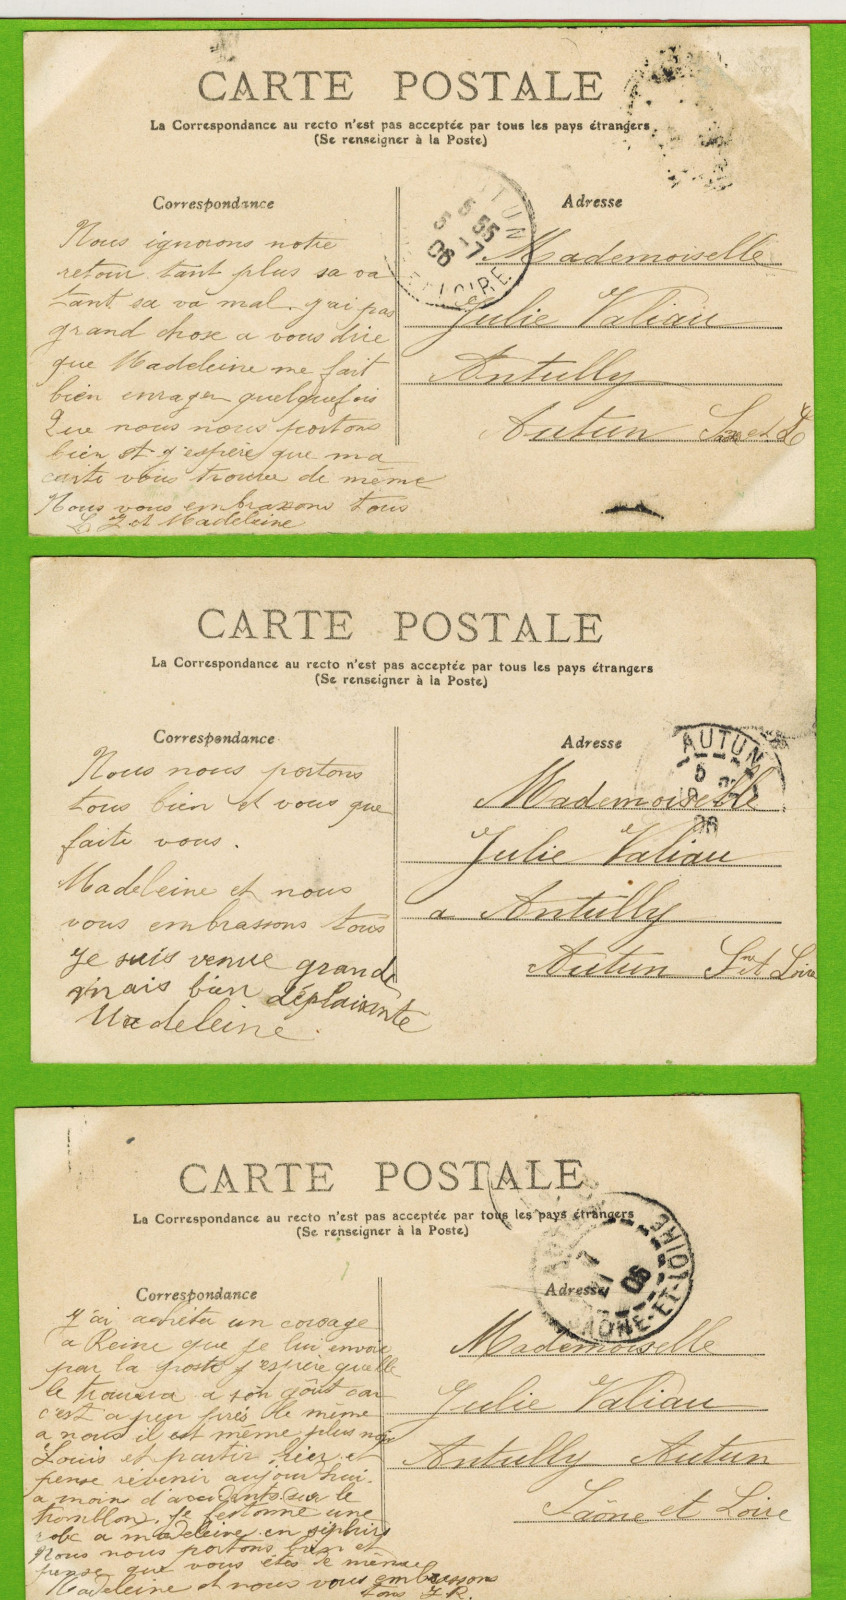 CARTE POSTALE
La Correspondance au recto n'est pas acceptée par tous les pays étrangers
(Se renseigner à la Poste)
Correspondance
Nous ignorons notre
retour tant plus sa va
tant sa va mal. j'ai pas
grand chose a vous dire
que Madeleine me fait
bien enrager quelquefois
Que nous nous portons
bien et j'espère que ma
carte vous trouve de même
Nous vous embrassons tous
et Madeleine
AUTUN
5 55
5 - 7
06
ET-LOIRE
Adresse
Mademoiselle
Julie Valiau
Antully
Autun Sne et L
CARTE POSTALE
La Correspondance au recto n'est pas acceptée par tous les pays étrangers
(Se renseigner à la Poste)
Correspondance
Nous nous portons
tous bien et vous que
faite vous.
Madeleine et nous
vous embrassons tous
Je suis venue grande
mais bien déplaisante
Madeleine.
Adresse
AUTUN
5
06
Mademoiselle
Julie Valiau
a Antully
Autun Sne et Loire
CARTE POSTALE
La Correspondance au recto n'est pas acceptée par tous les pays étrangers
(Se renseigner à la Poste)
Correspondance
J'ai achéter un corsage
a Reine que je lui envoie
par la poste j'espère quelle
le trouvera a son goût car
c'est a peu près le même
a nous il est même plus
Louis et partir hier et
pense revenir aujourd'hui.
a moins d'accidents sur le
tromblon. Je festonne une
robe a madeleine en
Nous nous portons bien et
pense que vous êtes de même
Madeleine et nous vous embrassons
tous J.R.
Adresse
SAONE-ET-LOIRE
06
Mademoiselle
Julie Valiau
Antully Autun
Saône et Loire